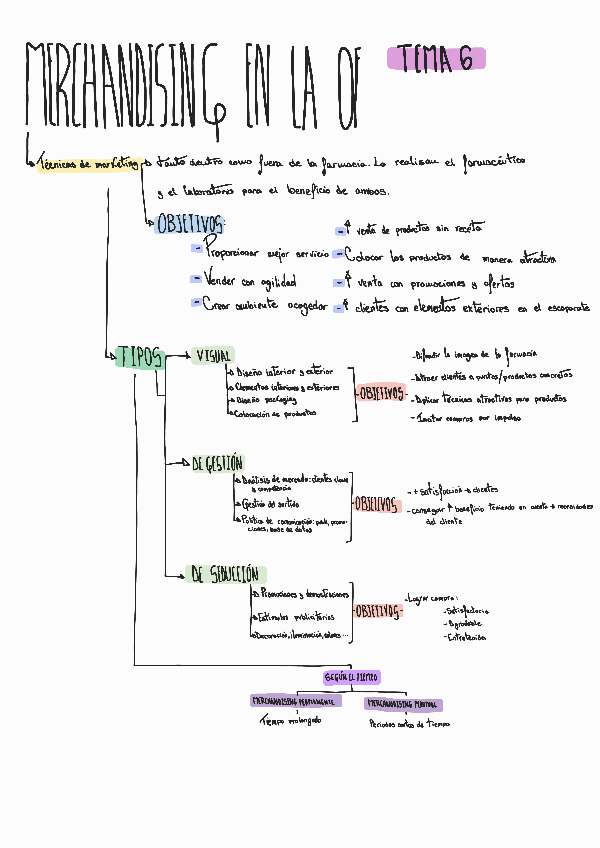 MERCHANDISING EN LA OF
TEMA 6
Técnicas de marketing → tanto dentro como fuera de la farmacia. Lo realizan el farmacéutico
y el laboratorio para el beneficio de ambos.
OBJETIVOS:
- Proporcionar mejor servicio
- Vender con agilidad
- Crear ambiente acogedor
- ↑ venta de productos sin receta
- Colocar los productos de manera atractiva
- ↑ venta con promociones y ofertas
- ↑ clientes con elementos exteriores en el escaparate
TIPOS
VISUAL
Diseño interior y exterior
Elementos interiores y exteriores
Diseño packaging
Colocación de productos
OBJETIVOS
- Difundir la imagen de la farmacia
- Atraer clientes a puntos/productos concretos
- Aplicar técnicas atractivas para productos
- Incitar compras por impulso
DE GESTIÓN
Análisis de mercado: clientes clave
y competencia
Gestión del surtido
Política de comunicación: publi, promo-
ciones, base de datos
OBJETIVOS
- + satisfacción → clientes
- conseguir ↑ beneficio teniendo en cuenta → necesidades
del cliente
DE SEDUCCIÓN
Promociones y demostraciones
Estímulos publicitarios
Decoración, iluminación, colores...
OBJETIVOS
- Lograr compra:
- Satisfactoria
- Agradable
- Entretenida
SEGÚN EL TIEMPO
MERCHANDISING PERMANENTE
Tiempo prolongado
MERCHANDISING PUNTUAL
Periodos cortos de tiempo